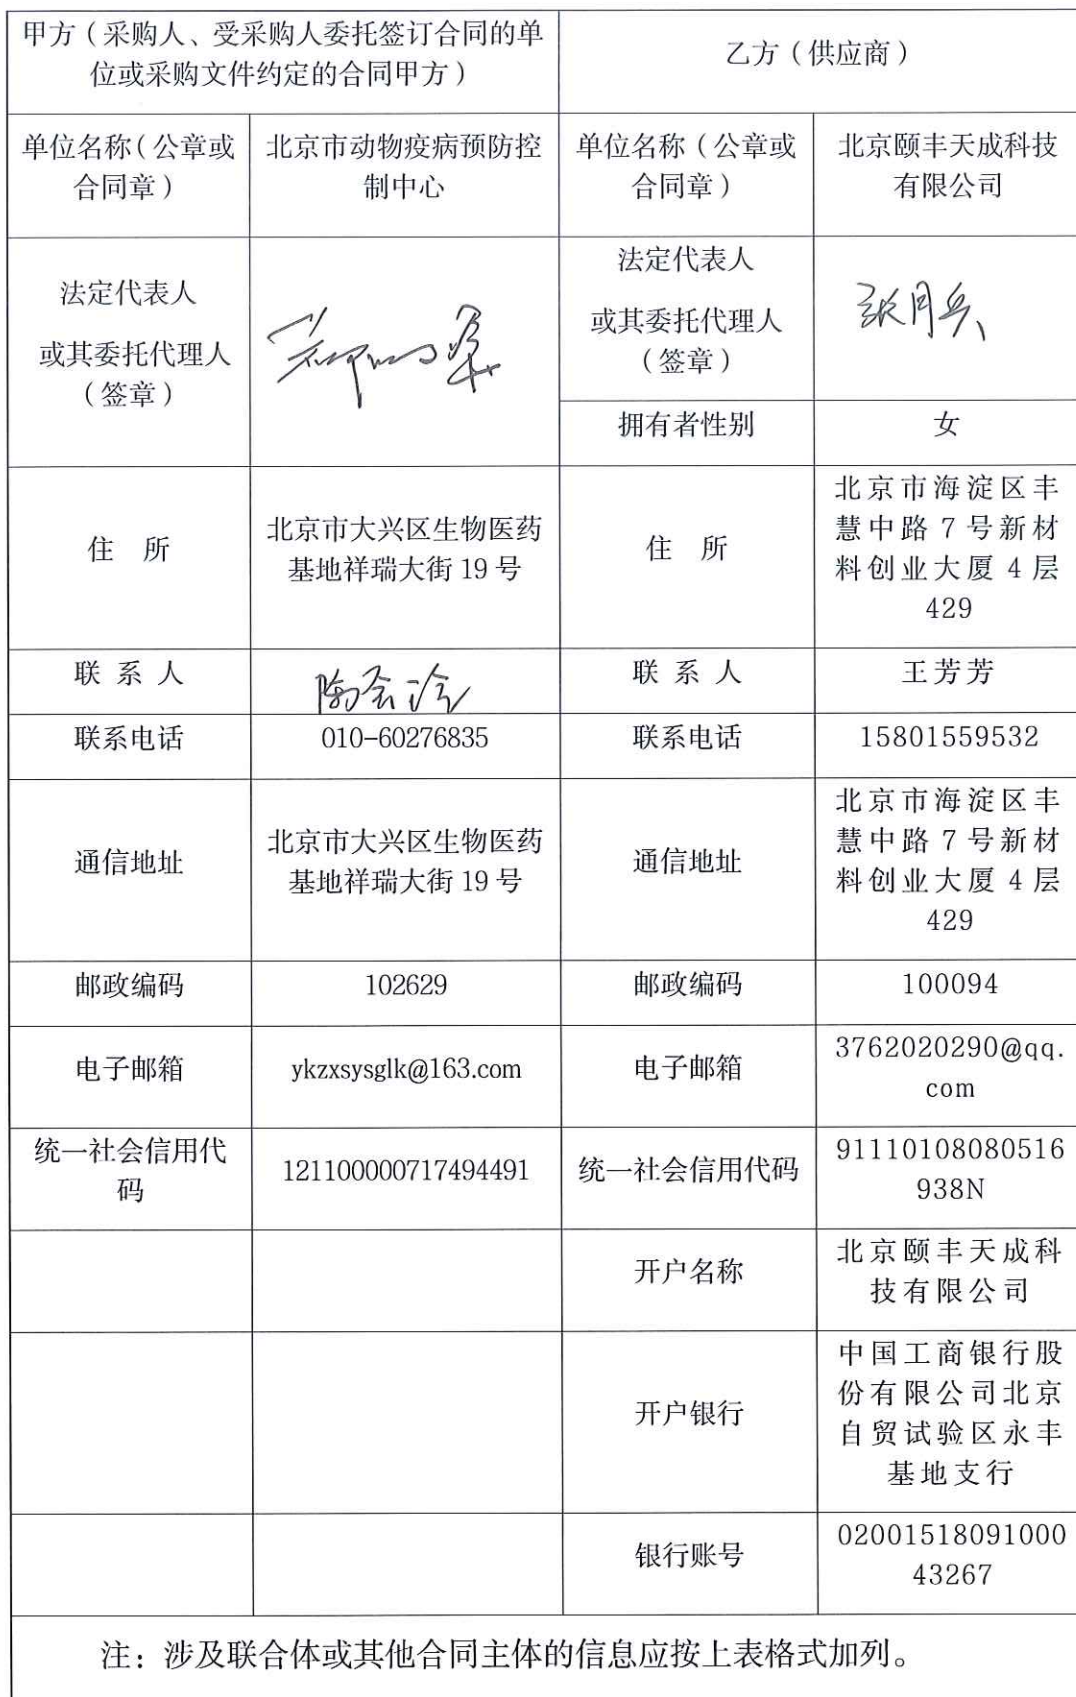 甲方（采购人、受采购人委托签订合同的单
位或采购文件约定的合同甲方）
乙方（供应商）
单位名称（公章或
合同章）
北京市动物疫病预防控
制中心
单位名称（公章或
合同章）
北京颐丰天成科技
有限公司
法定代表人
或其委托代理人
（签章）
法定代表人
或其委托代理人
（签章）
张月兵
拥有者性别
女
住 所
北京市大兴区生物医药
基地祥瑞大街 19 号
住 所
北京市海淀区丰
慧中路 7 号新材
料创业大厦 4 层
429
联 系 人
联 系 人
王芳芳
联系电话
010-60276835
联系电话
15801559532
通信地址
北京市大兴区生物医药
基地祥瑞大街 19 号
通信地址
北京市海淀区丰
慧中路 7 号新材
料创业大厦 4 层
429
邮政编码
102629
邮政编码
100094
电子邮箱
ykzxsysglk@163.com
电子邮箱
3762020290@qq.
com
统一社会信用代
码
121100000717494491
统一社会信用代码
91110108080516
938N
开户名称
北京颐丰天成科
技有限公司
开户银行
中国工商银行股
份有限公司北京
自贸试验区永丰
基地支行
银行账号
02001518091000
43267
注：涉及联合体或其他合同主体的信息应按上表格式加列。